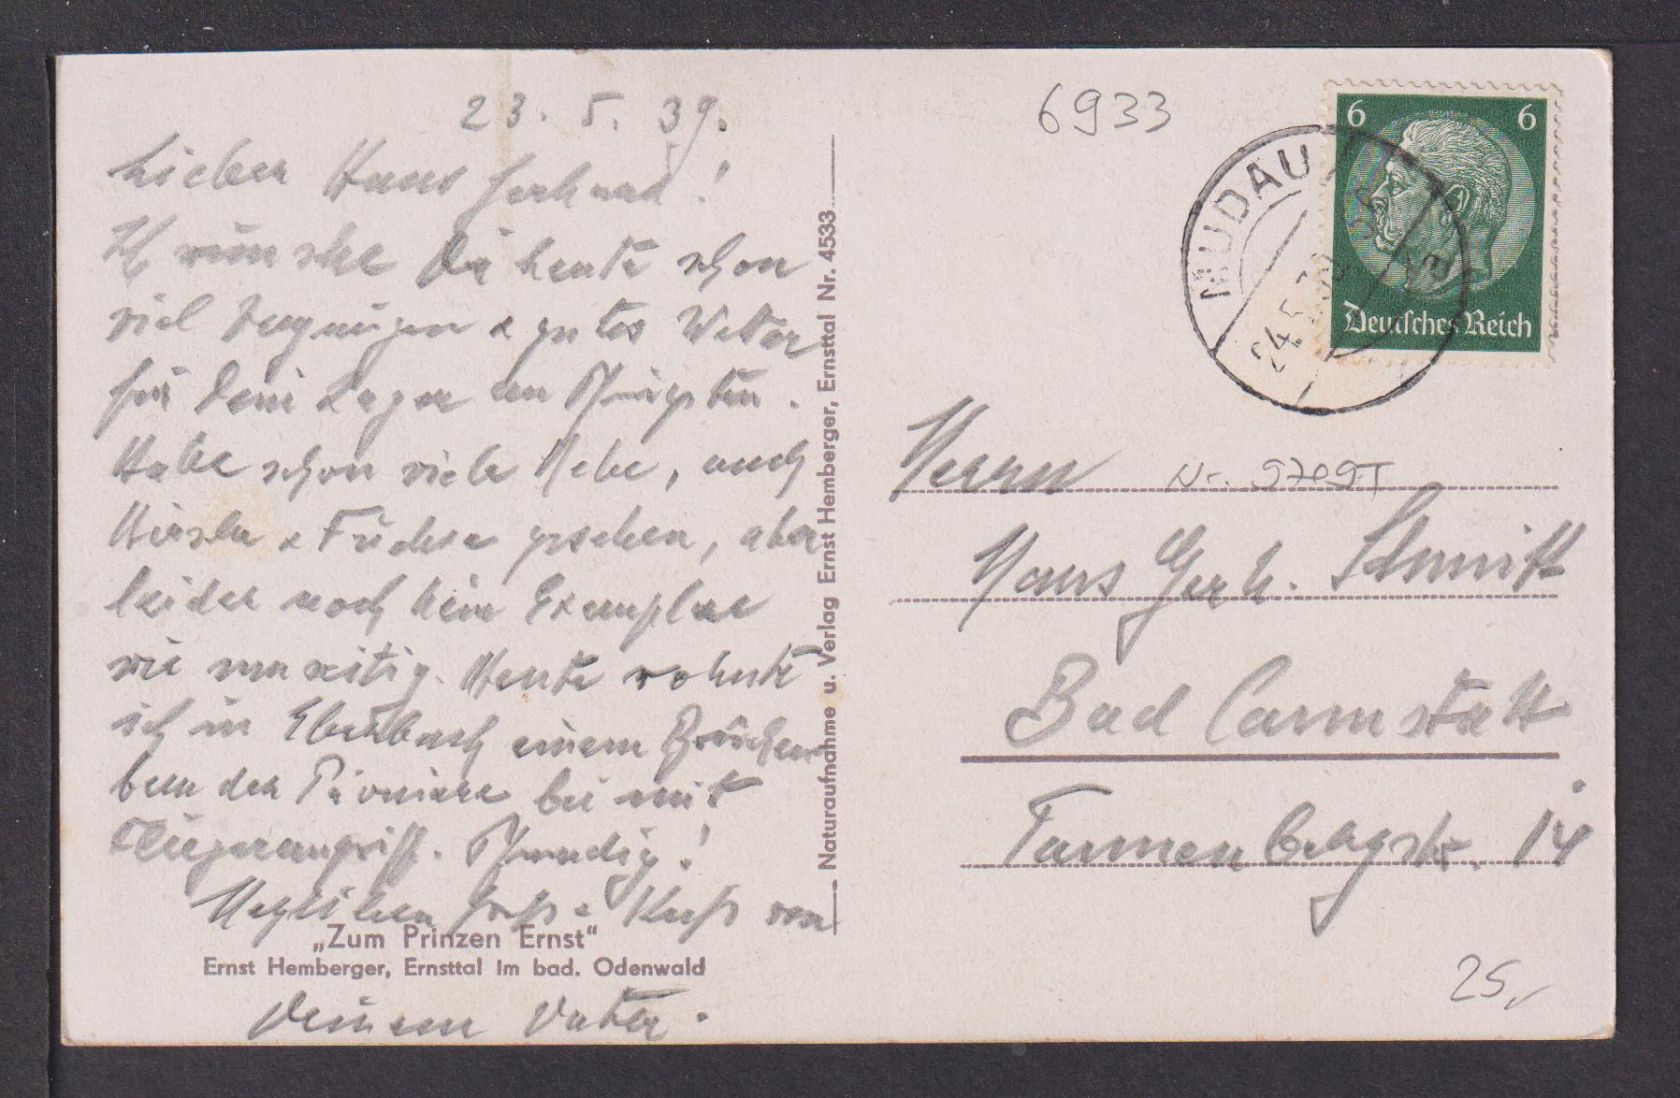 23. 5. 39.
Lieber Hans Gerhard!
Ich wünsche Dir heute schon
viel Vergnügen & gutes Wetter
für Dein Lager an Pfingsten.
Habe schon viele Rehe, auch
Hirsche & Füchse gesehen, aber
leider noch kein Exemplar
wie
Heute wohnte
ich in Eberbach einem Brücken
bau der Pioniere bei mit
Fliegerangriff. Pfundig!
Herzlichen Gruß & Kuß von
„Zum Prinzen Ernst“
Ernst Hemberger, Ernsttal im bad. Odenwald
Deinem Vater.
Naturaufnahme u. Verlag Ernst Hemberger, Ernsttal Nr. 4533
6933
6 6
Deutsches Reich
MUDAU
24.5.39
Herrn
Nr.
Hans Gerh. Schmitt
Bad Cannstatt
14
25,-